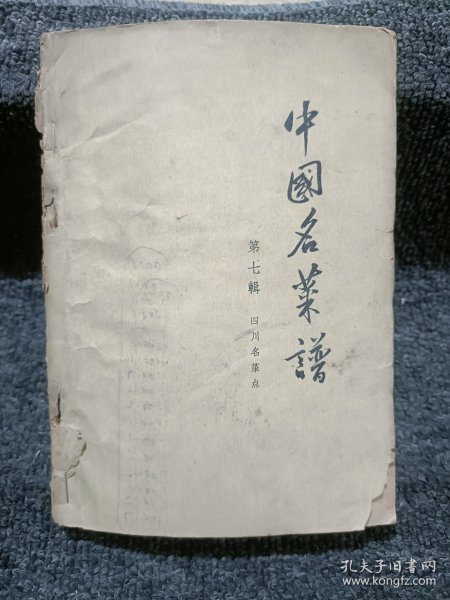 中國名菜譜
第七輯 四川名菜点
孔夫子旧书网
www.kongfz.com